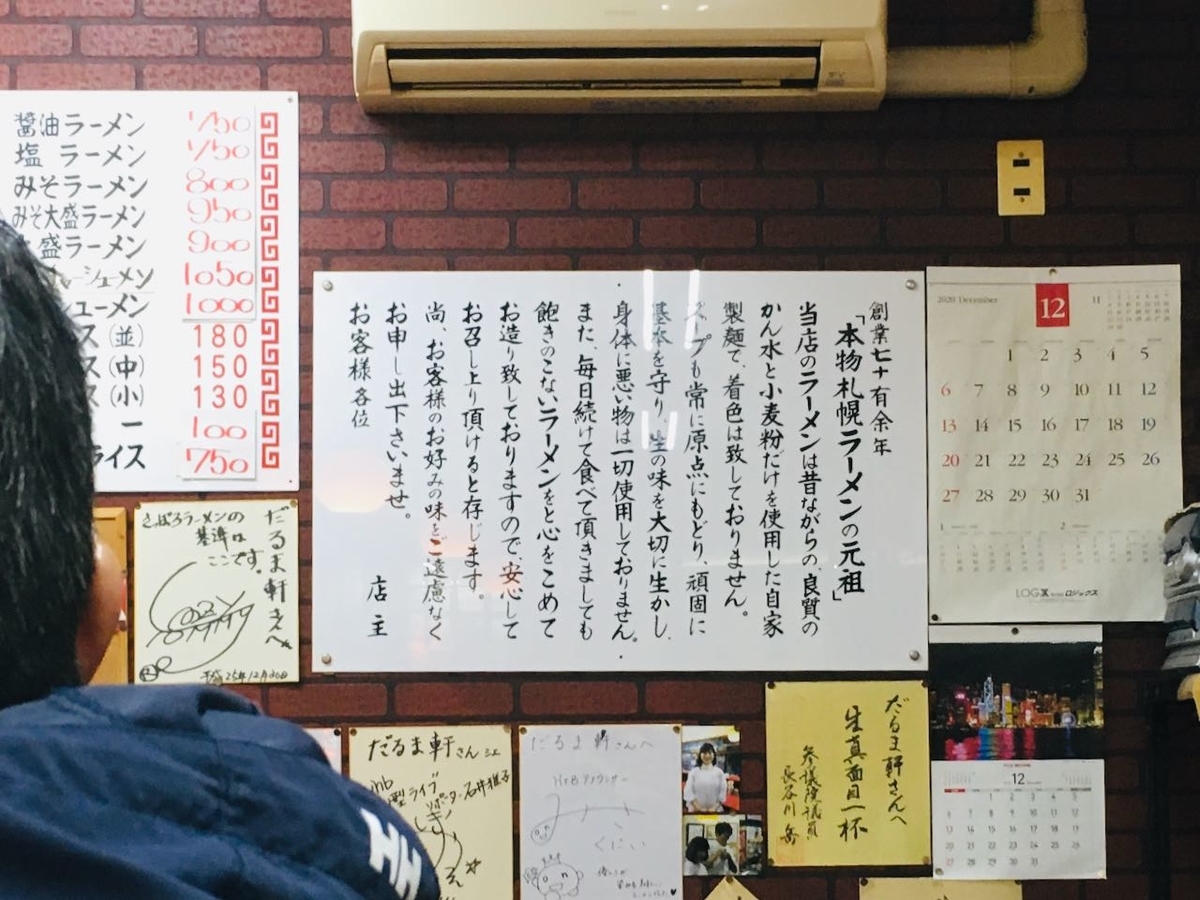 醤油ラーメン 750
塩 ラーメン 750
みそラーメン 800
みそ大盛ラーメン 950
盛ラーメン 900
チャーシューメン 1050
ューメン 1000
ス(並) 180
ス(中) 150
ス(小) 130
ー 100
ライス 750
創業七十有余年
「本物札幌ラーメンの元祖」
当店のラーメンは昔ながらの、良質の
かん水と小麦粉だけを使用した自家
製麺で、着色は致しておりません。
スープも常に原点にもどり、頑固に
基本を守り、生の味を大切に生かし、
身体に悪い物は一切使用しておりません。
また、毎日続けて食べて頂きましても
飽きのこないラーメンをと心をこめて
お造り致しておりますので、安心して
お召し上り頂けると存じます。
尚、お客様のお好みの味をご遠慮なく
お申し出下さいませ。
お客様各位
店主
2020 December
12
11
1 2 3 4 5
6 7 8 9 10 11 12
13 14 15 16 17 18 19
20 21 22 23 24 25 26
27 28 29 30 31
LOG 株式会社 ロジックス
だるま軒さんへ
さっぽろラーメンの
基準は
ここです。
平成25年12月20日
だるま軒さん江
だるま軒さんへ
HTBアナウンサー
だるま軒さんへ
生真面目一杯
参議院議員
長谷川 岳
12
1 2 3 4 5
6 7 8 9 10 11 12
13 14 15 16 17 18 19
20 21 22 23 24 25 26
27 28 29 30 31
HH